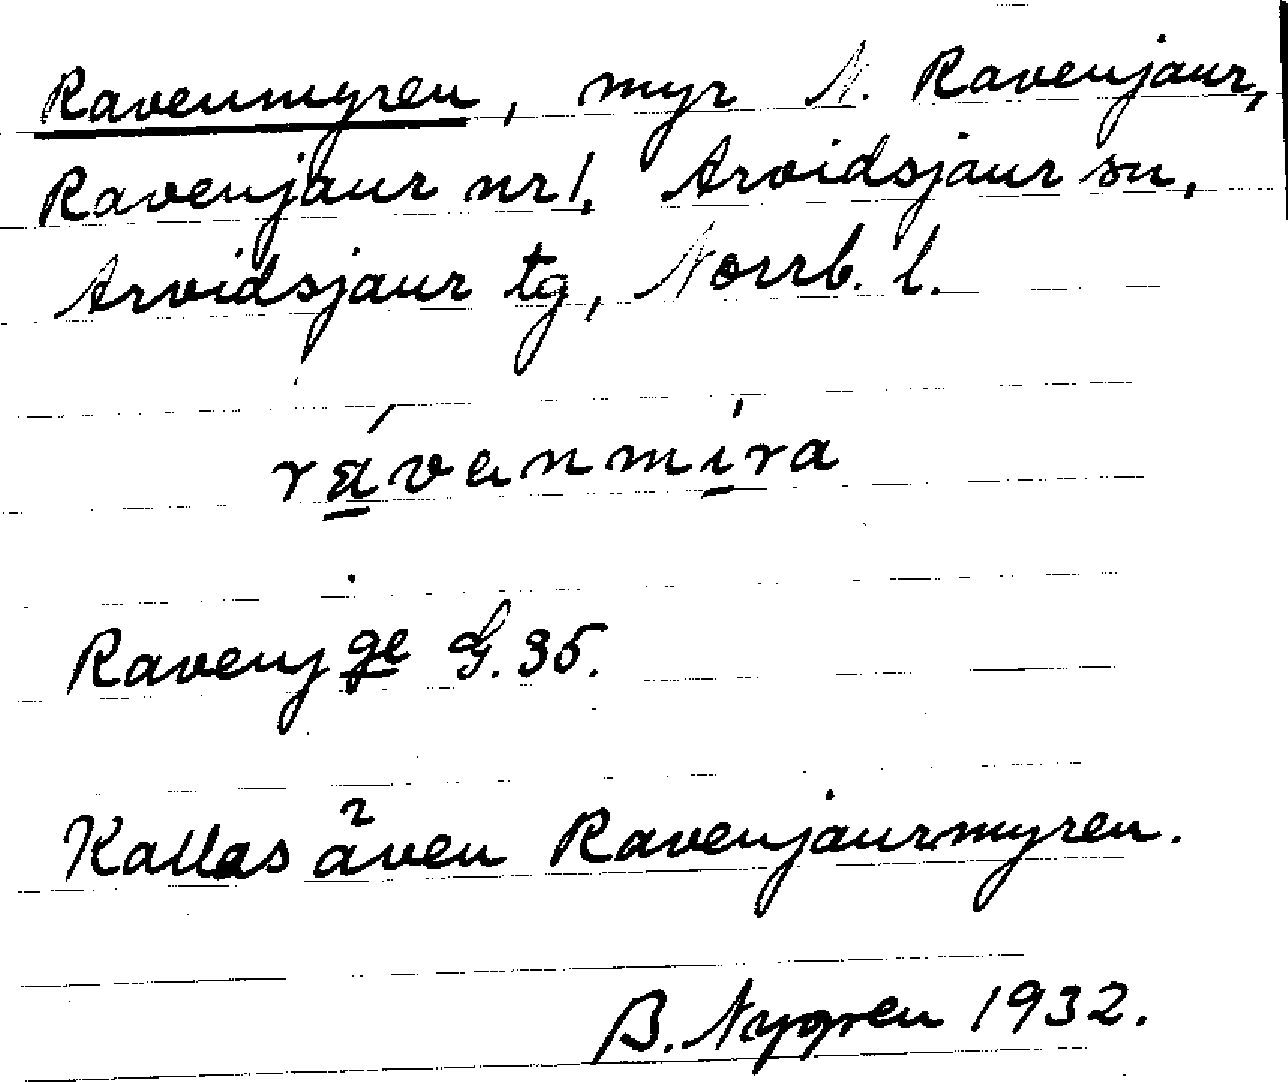 Ravenmyren, myr N. Ravenjaur,
Ravenjaur nr 1, Arvidsjaur sn,
Arvidsjaur tg, Norrb. l.
rávanmíra
Ravenj ge G. 35.
Kallas även Ravenjaurmyren.
B. Nygren 1932.